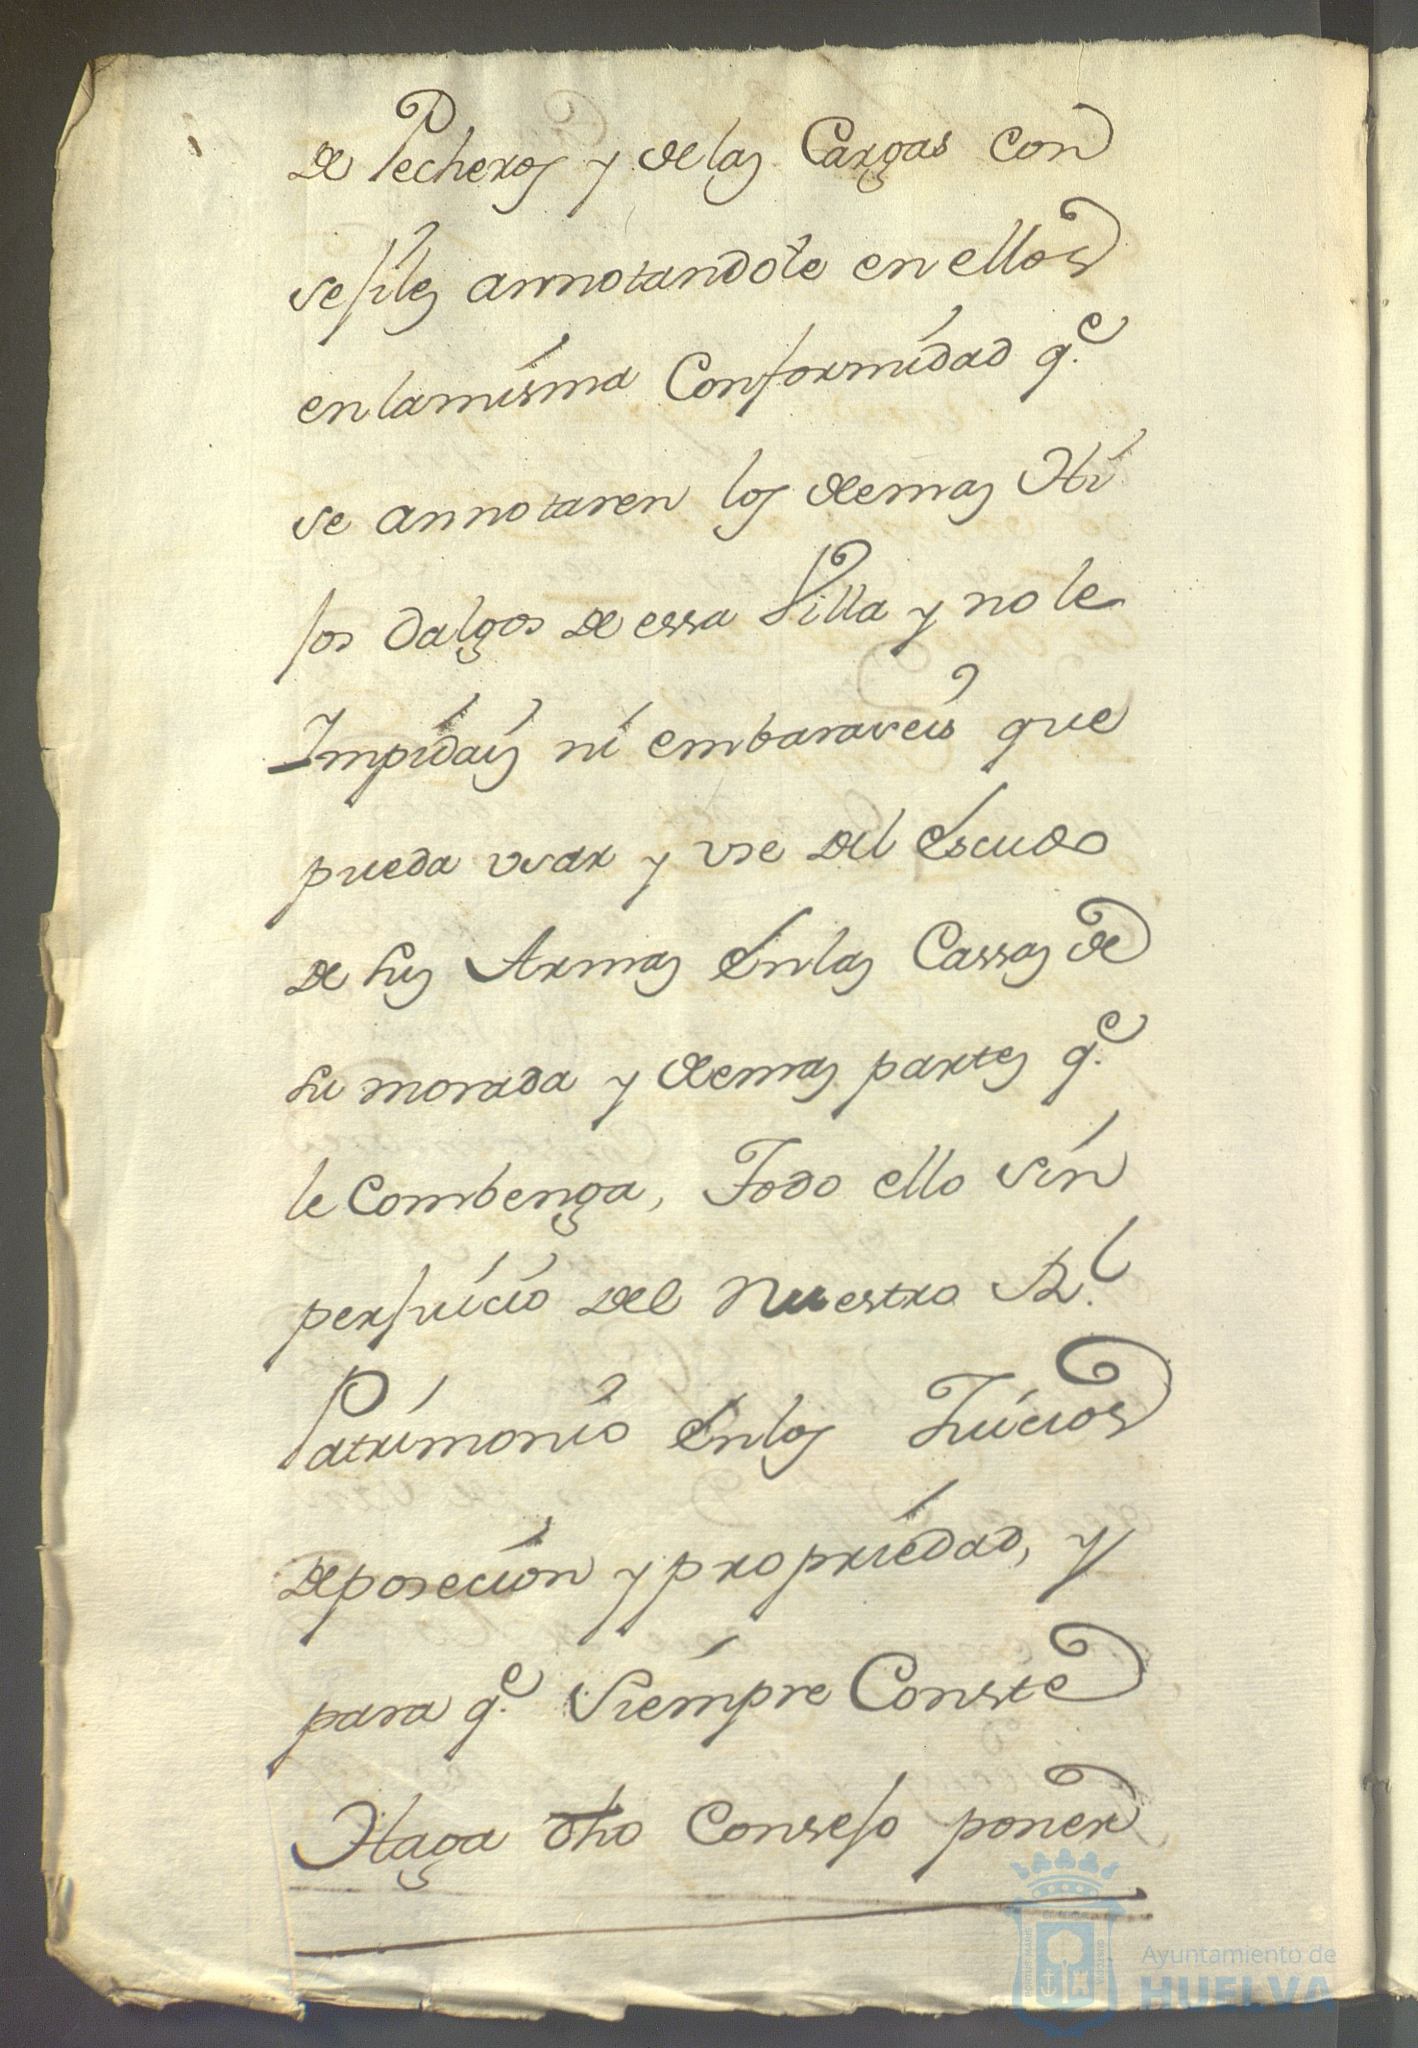 de Pecheros y de las Cargas con
sejiles annotandole en ellos
en la misma Conformidad q.e
se annotaren los demas Hi
jos dalgos de essa Villa y no le
Impidais ni embaraseis que
pueda usar y use del Escudo
de sus Armas En las Cassas de
su morada y demas partes q.e
le Combenga, Todo ello sin
perjuicio del Nuestro R.l
Patrimonio En los Juicios
de posecion y propriedad, y
para q.e Siempre Conste
Haga dho Consejo poner
Ayuntamiento de
HUELVA